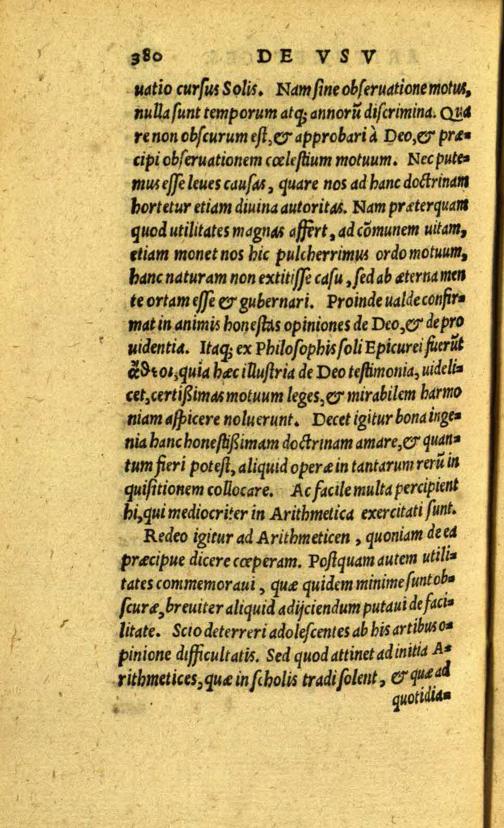 380 DE VSV
uatio cursus Solis. Nam sine obseruatione motus,
nulla sunt temporum atq; annorũ discrimina. Qua
re non obscurum est, & approbari à Deo, & præ=
cipi obseruationem cœlestium motuum. Nec pute=
mus esse leues causas, quare nos ad hanc doctrinam
hortetur etiam diuina autoritas. Nam præterquam
quod utilitates magnas affert, ad cõmunem uitam,
etiam monet nos hic pulcherrimus ordo motuum,
hanc naturam non extitisse casu, sed ab æterna men
te ortam esse & gubernari. Proinde ualde confir=
mat in animis honestas opiniones de Deo, & de pro
uidentia. Itaq; ex Philosophis soli Epicurei fuerũt
ἄθεοι, quia hæc illustria de Deo testimonia, uideli=
cet, certißimas motuum leges, & mirabilem harmo
niam aspicere noluerunt. Decet igitur bona inge=
nia hanc honestißimam doctrinam amare, & quan=
tum fieri potest, aliquid operæ in tantarum rerũ in
quisitionem collocare. Ac facile multa percipient
hi, qui mediocriter in Arithmetica exercitati sunt.
Redeo igitur ad Arithmeticen, quoniam de ea
præcipue dicere cœperam. Postquam autem utili=
tates commemoraui, quæ quidem minime sunt ob=
scuræ, breuiter aliquid adijciendum putaui de faci=
litate. Scio deterreri adolescentes ab his artibus o=
pinione difficultatis. Sed quod attinet ad initia A=
rithmetices, quæ in scholis tradi solent, & quæ ad
quotidia=